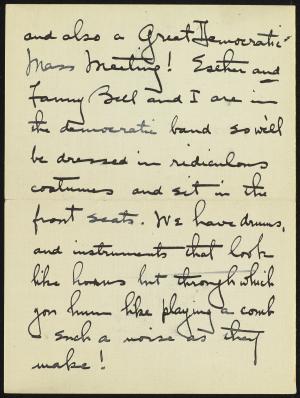 and also a Great Democratic
Mass Meeting! Esther and
Fanny Bell and I are in
the democratic band so we'll
be dressed in ridiculous
costumes and sit in the
front seats. We have drums,
and instruments that look
like horns but through which
you hum like playing a comb
Such a noise as they
make!